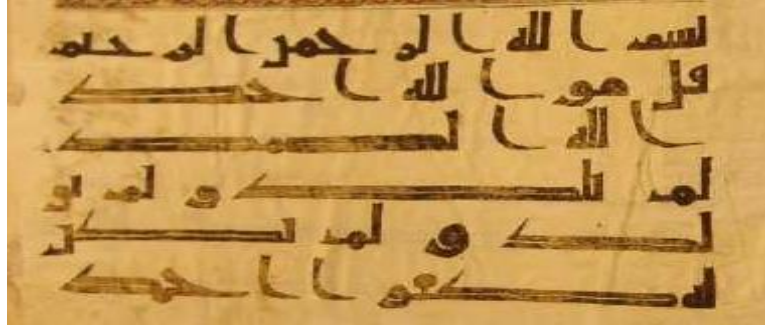 بسم الله الرحمن الرحيم
قل هو الله احد
الله الصمد
لم يلد و لم يو
لد و لم يكن
له كفوا احد